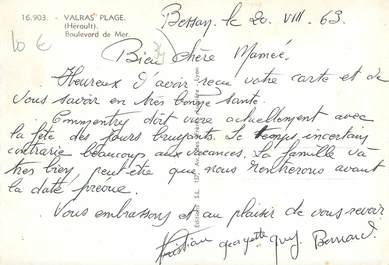 16.903. - VALRAS PLAGE.
(Hérault).
Boulevard de Mer.
10 €
Bessan, le 20. VIII. 63.
Bien chère Mamée.
Heureux d'avoir reçu votre carte et de
vous savoir en très bonne santé.
Commentry doit vivre actuellement avec
la fête des jours bruyants. Le temps incertain
contrarie beaucoup aux vacances. La famille va
très bien, peut-être que nous rentrerons avant
la date prévue.
Vous embrassons et au plaisir de vous revoir
Christian Georgette Guy. Bernard.